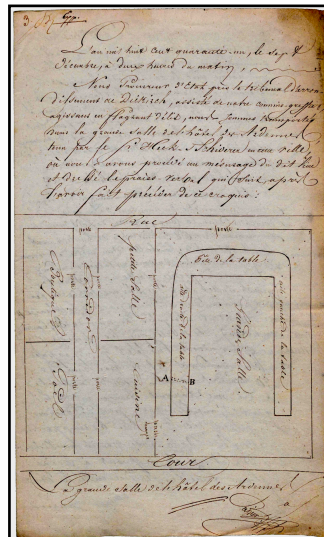 3
L'an mil huit cent quarante-un, le sept
Décembre, à onze heures du matin,
Nous Procureur d'Etat près le tribunal d'arron
dissement de Diekirch, assisté de notre commis-greffier
agissant en flagrant délit, nous sommes transportés
dans la grande salle de l'hôtel des Ardennes
tenu par le Sr Heck en cette ville
où nous avons procédé au mesurage du dit lieu
et dressé le présent verbal qui suit, après
l'avoir fait précéder de ce croquis:
Rue
porte porte porte porte
Boutique
Corridor
petite Salle
tête de la table
côté droit de la table
côté gauche de la table
Grande Salle
Poêle
Cuisine
A B
Cour
La grande salle de l'hôtel des Ardennes a